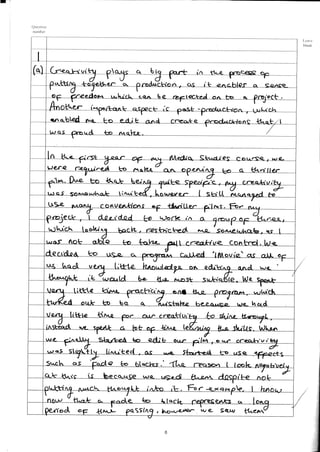 Question
number
Leave
blank
1
(a) Creativity plays a big part in the process of
putting together a production, as it enables a sense
of freedom which can be reflected on to a project.
Another important aspect is post-production, which
enabled me to edit and create productions that I
was proud to make.
In the first year of my Media Studies course, we
were required to make an opening to a thriller
film. Due to that being quite specific, my creativity
was somewhat limited, however I still managed to
use many conventions of thriller films. For my
project, I decided to work in a group of three,
which looking back, restricted me somewhat, as I
was not able to take full creative control. We
decided to use a program called 'IMovie' as all of
us had very little knowledge on editing and we
thought it would be the most suitable. We spent
very little time practicing the program, which
turned out to be a mistake because we had
very little time for our creativity to shine through,
instead we spent a lot of time learning the skills. When
we finally started to edit our film, our creativity
was slightly limited, as we started to use effects
such as 'fade to blacks'. The reason I look negatively
at this is because we used them despite not
putting much thought into it. For example, I know
now that a fade to black represents a long
period of time passing, however we saw them
8